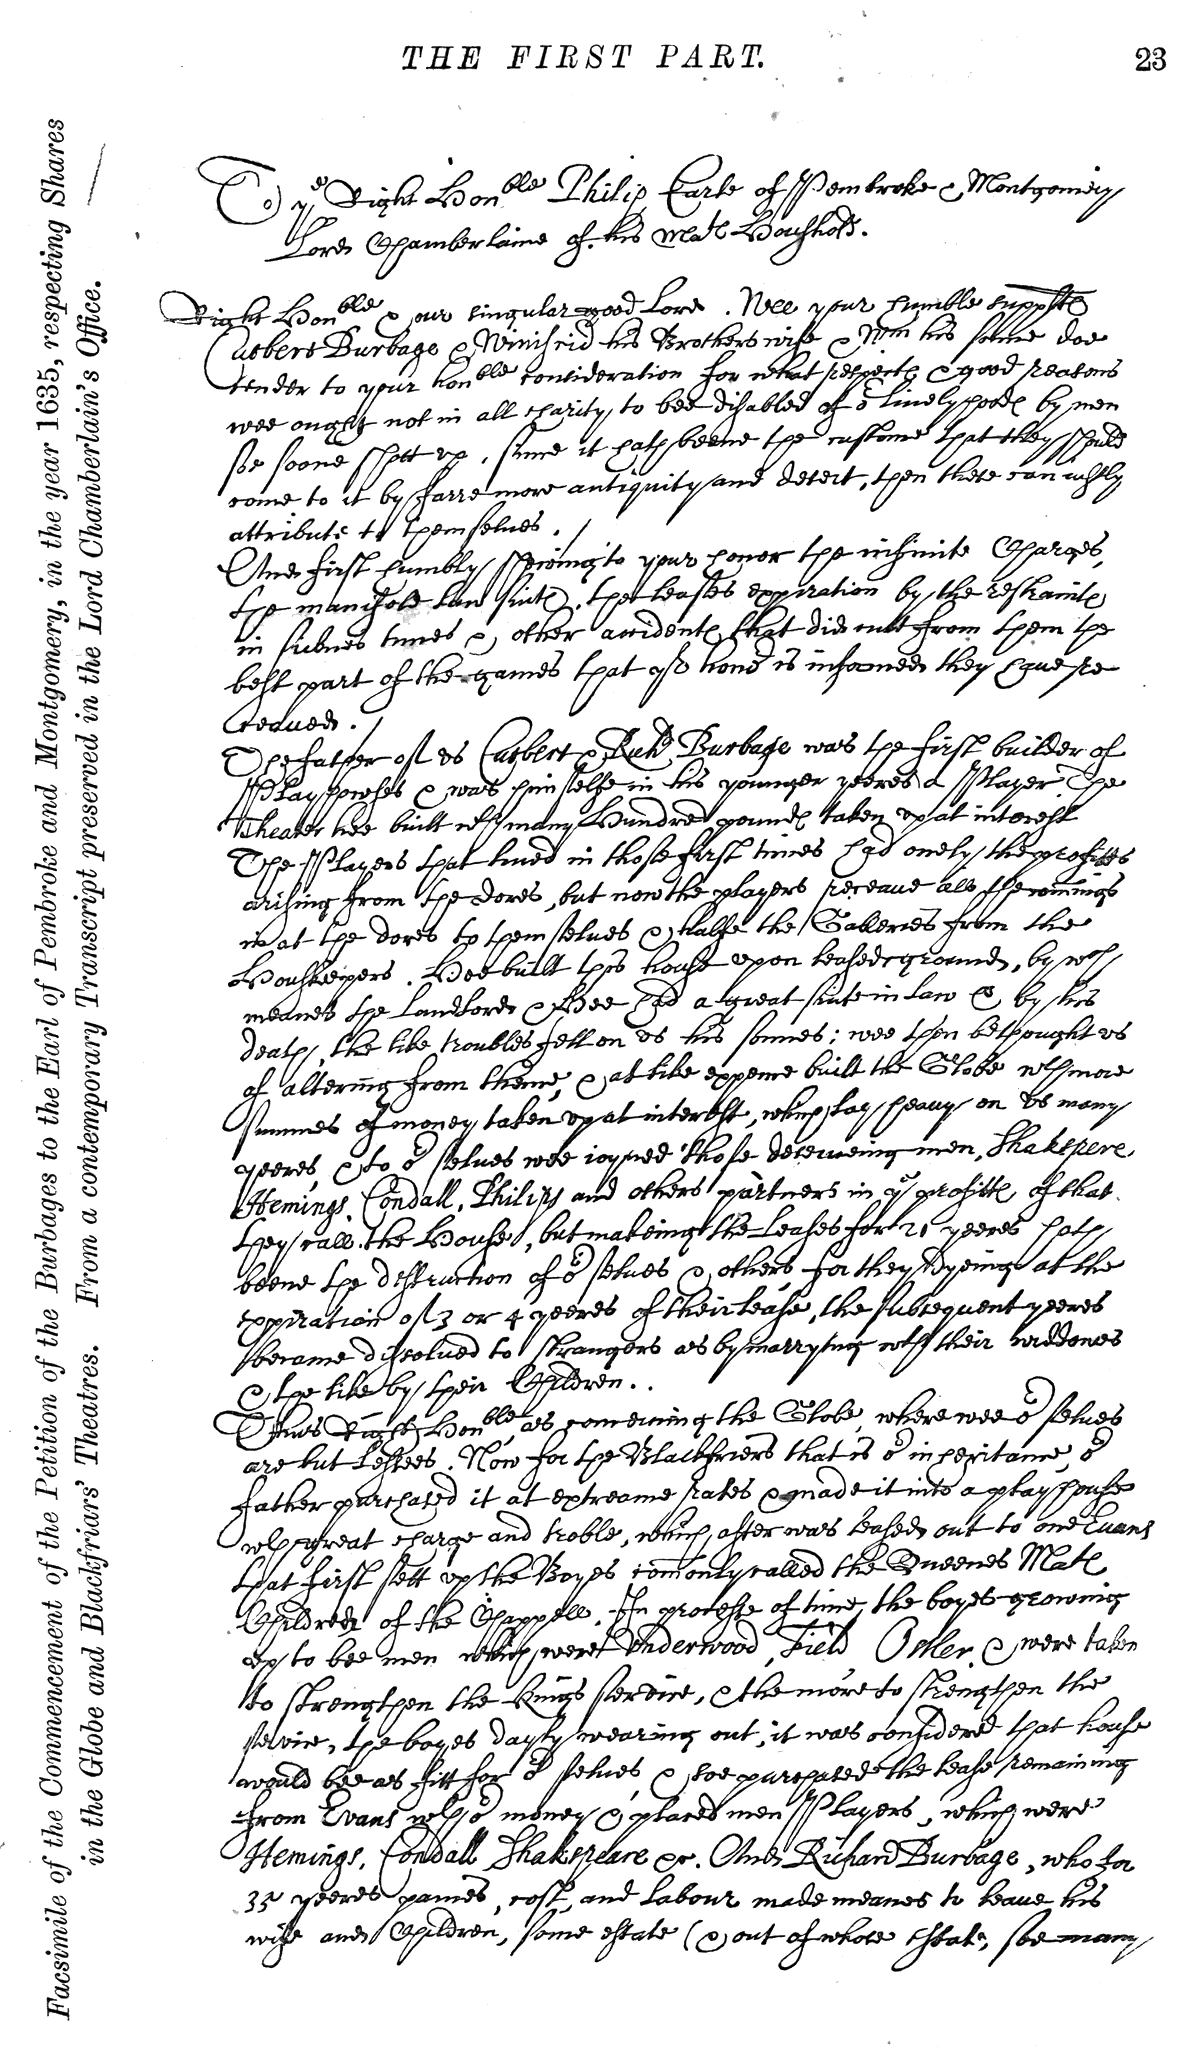 THE FIRST PART.
23
Facsimile of the Commencement of the Petition of the Burbages to the Earl of Pembroke and Montgomery, in the year 1635, respecting Shares
in the Globe and Blackfriars' Theatres. From a contemporary Transcript preserved in the Lord Chamberlain's Office.
To yᵉ Right Honᵇˡᵉ Philip Earle of Pembroke & Montgomery
Lord Chamberlaine of his Maᵗⁱᵉˢ Houshold.
Right Honᵇˡᵉ & our singular good Lord. Wee your humble suppᵗˢ
Cutbert Burbage & Winifrid his Brothers wife & Wᵐ his sonne doe
tender to your honᵇˡᵉ consideration for what respectes & good reasons
wee ought not in all charity to bee disabled of oʳ livelyhoodes by men
soe soone shott up, since it hath beene the custome that they should
come to it by farre more antiquity and desert, then these can justly
attribute to themselves.
And first humbly shewing to your honor the infinite Charges,
the manifold law suites, the leases expiration by the restraintes
in sicknes times & other accidentes that did cutt from them the
best part of the gaines that yoʳ honoʳ is informed they have re
ceaved.
The father of us Cutbert & Richᵈ Burbage was the first builder of
Playhowses & was himselfe in his younger yeeres a Player. The
Theater hee built wᵗʰ many Hundred poundes taken up at interest
The Players that lived in those first times had onely the profitts
arising from the dores, but now the players receave all the commings
in at the dores to themselves & halfe the Galleries from the
Houskeepers. Hee built this house upon leased ground, by wᶜʰ
meanes the landlord & Hee had a great suite in law & by his
death, the like troubles fell on us his sonnes; wee then bethought us
of altering from thence, & at like expence built the Globe wᵗʰ more
summes of money taken up at interest, which lay heavy on us many
yeeres, & to oʳ selves wee joyned those deserveing men, Shakspere
Hemings, Condall, Philips and others partners in yᵉ profittes of that
they call the House, but makeing the leases for 21 yeeres hath
beene the destruction of oʳ selves & others, for they dyeing at the
expiration of 3 or 4 yeeres of their lease, the subsequent yeeres
became dissolved to strangers as by marrying wᵗʰ their widdowes
& the like by their Children.
Thus Right Honᵇˡᵉ, as concerning the Globe, where wee oʳ selves
are but lessees. Now for the Blackfriers that is oʳ inheritance, oʳ
father purchased it at extreame rates & made it into a playhouse
wᵗʰ great charge and troble, which after was leased out to one Evans
that first sett up the Boyes commonly called the Queenes Maᵗⁱᵉˢ
Children of the Chappell. In processe of time the boyes growing
up to bee men which were Underwood, Field Ostler, & were taken
to strengthen the Kings service, & the more to strengthen the
service, the boyes dayly wearing out, it was considered that house
would bee as fitt for oʳ selves, & soe purchased the lease remaining
from Evans wᵗʰ oʳ money & placed men Players, which were
Hemings, Condall Shakspeare &c. And Richard Burbage, who for
35 yeeres paines, cost, and labour made meanes to leave his
wife and Children, some estate (& out of whose estate, soe many